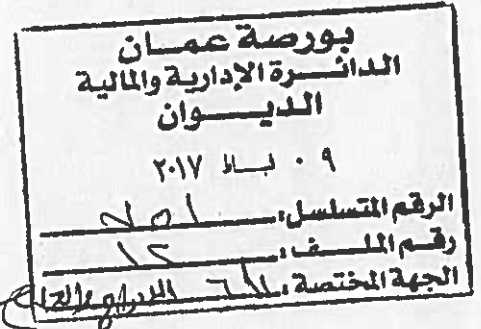 بورصة عمان
الدائرة الإدارية والمالية
الديوان
٠٩ شباط ٢٠١٧
الرقم المتسلسل:
رقم الملف: ١٢
الجهة المختصة: